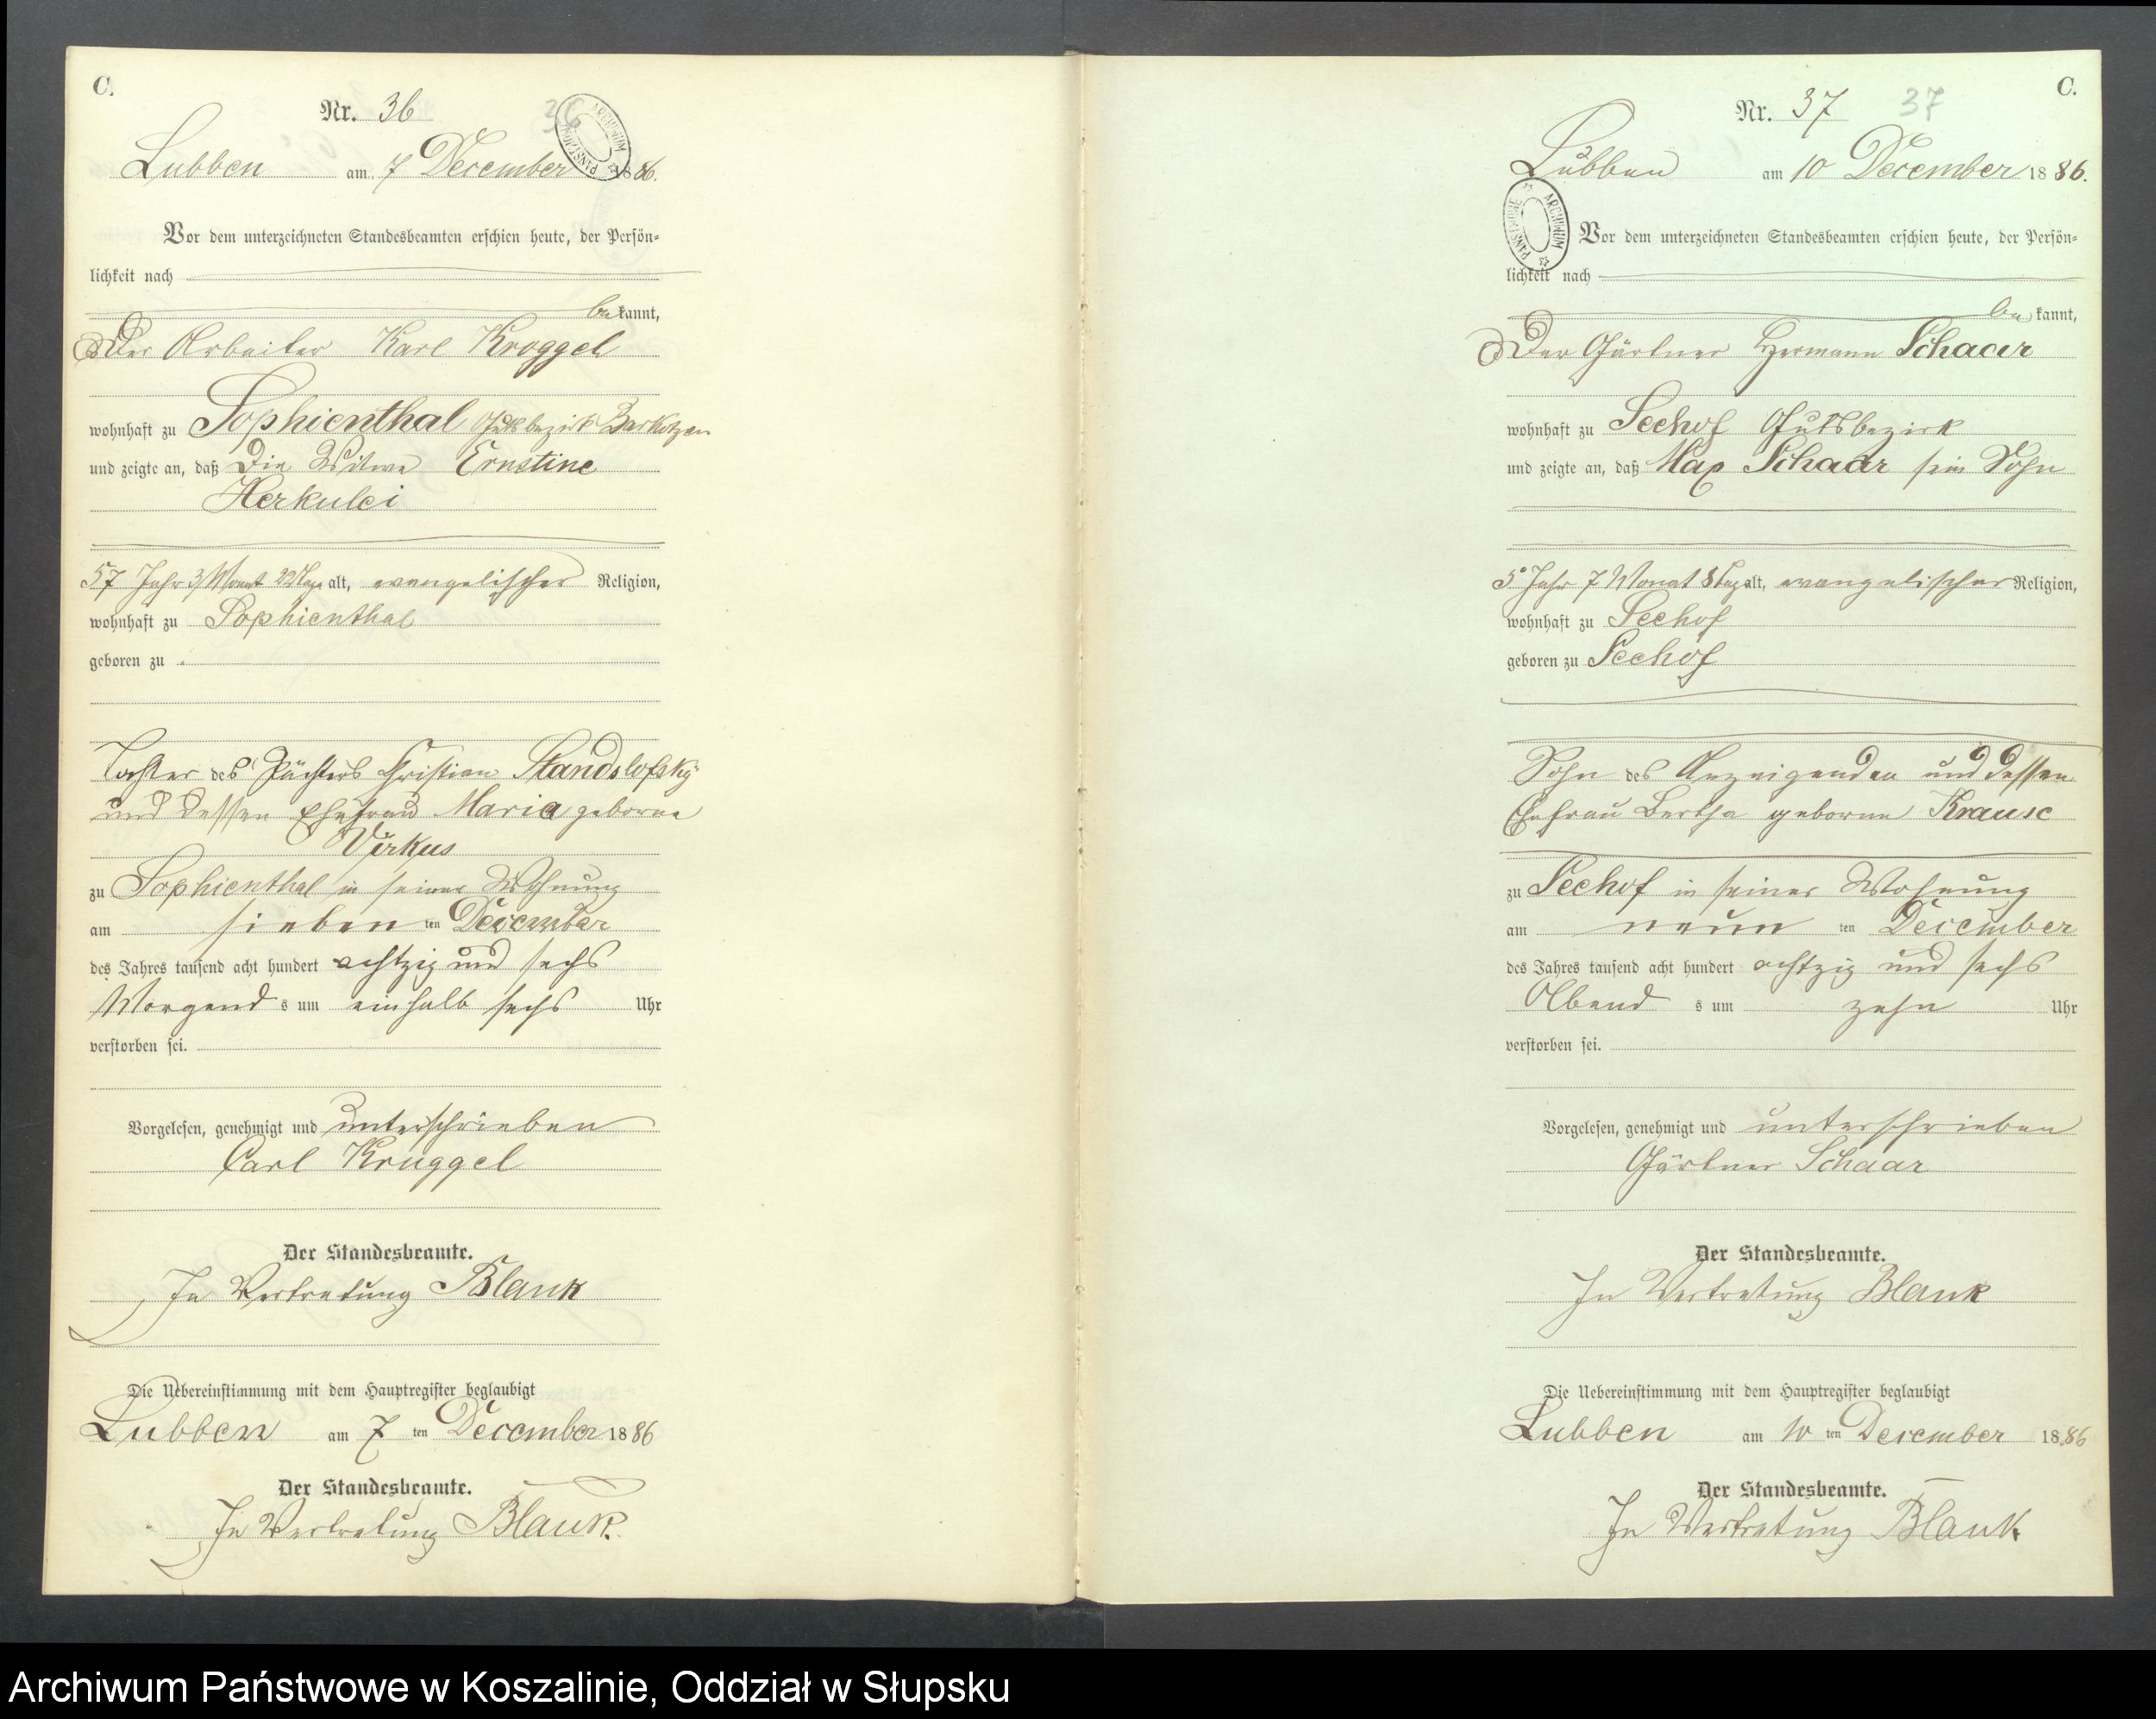 C.
Nr. 36
36
Lubben am 7 December 1886.
Vor dem unterzeichneten Standesbeamten erschien heute, der Persön-
lichkeit nach
bekannt,
Der Arbeiter Karl Kroggel
wohnhaft zu Sophienthal Gutsbezirk Barkotzen
und zeigte an, daß Die Witwe Ernstine
Herkulei
57 Jahr 3 Monat 22 Tage alt, evangelischer Religion,
wohnhaft zu Sophienthal
geboren zu
Tochter des Pächters Christian Standslofsky
und dessen Ehefrau Maria geborne
Virkus
zu Sophienthal in seiner Wohnung
am sieben ten December
des Jahres tausend acht hundert achtzig und sechs
Morgend s um einhalb sechs Uhr
verstorben sei.
Vorgelesen, genehmigt und unterschrieben
Carl Kruggel
Der Standesbeamte.
In Vertretung Blank
Die Uebereinstimmung mit dem Hauptregister beglaubigt
Lubben am 7 ten December 1886
Der Standesbeamte.
In Vertretung Blank.
C.
Nr. 37
37
Lübben am 10 December 1886.
ARCHIWUM PAŃSTWOWE
Vor dem unterzeichneten Standesbeamten erschien heute, der Persön-
lichkeit nach
bekannt,
Der Gärtner Hermann Schaar
wohnhaft zu Seehof Gutsbezirk
und zeigte an, daß Max Schaar sein Sohn
5 Jahr 7 Monat 8 Tag alt, evangelischer Religion,
wohnhaft zu Seehof
geboren zu Seehof
Sohn des Anzeigenden und dessen
Ehefrau Bertha geborne Krause
zu Seehof in seiner Wohnung
am neun ten December
des Jahres tausend acht hundert achtzig und sechs
Abend s um zehn Uhr
verstorben sei.
Vorgelesen, genehmigt und unterschrieben
Gärtner Schaar
Der Standesbeamte.
In Vertretung Blank
Die Uebereinstimmung mit dem Hauptregister beglaubigt
Lubben am 10 ten December 1886
Der Standesbeamte.
In Vertretung Blank
Archiwum Państwowe w Koszalinie, Oddział w Słupsku